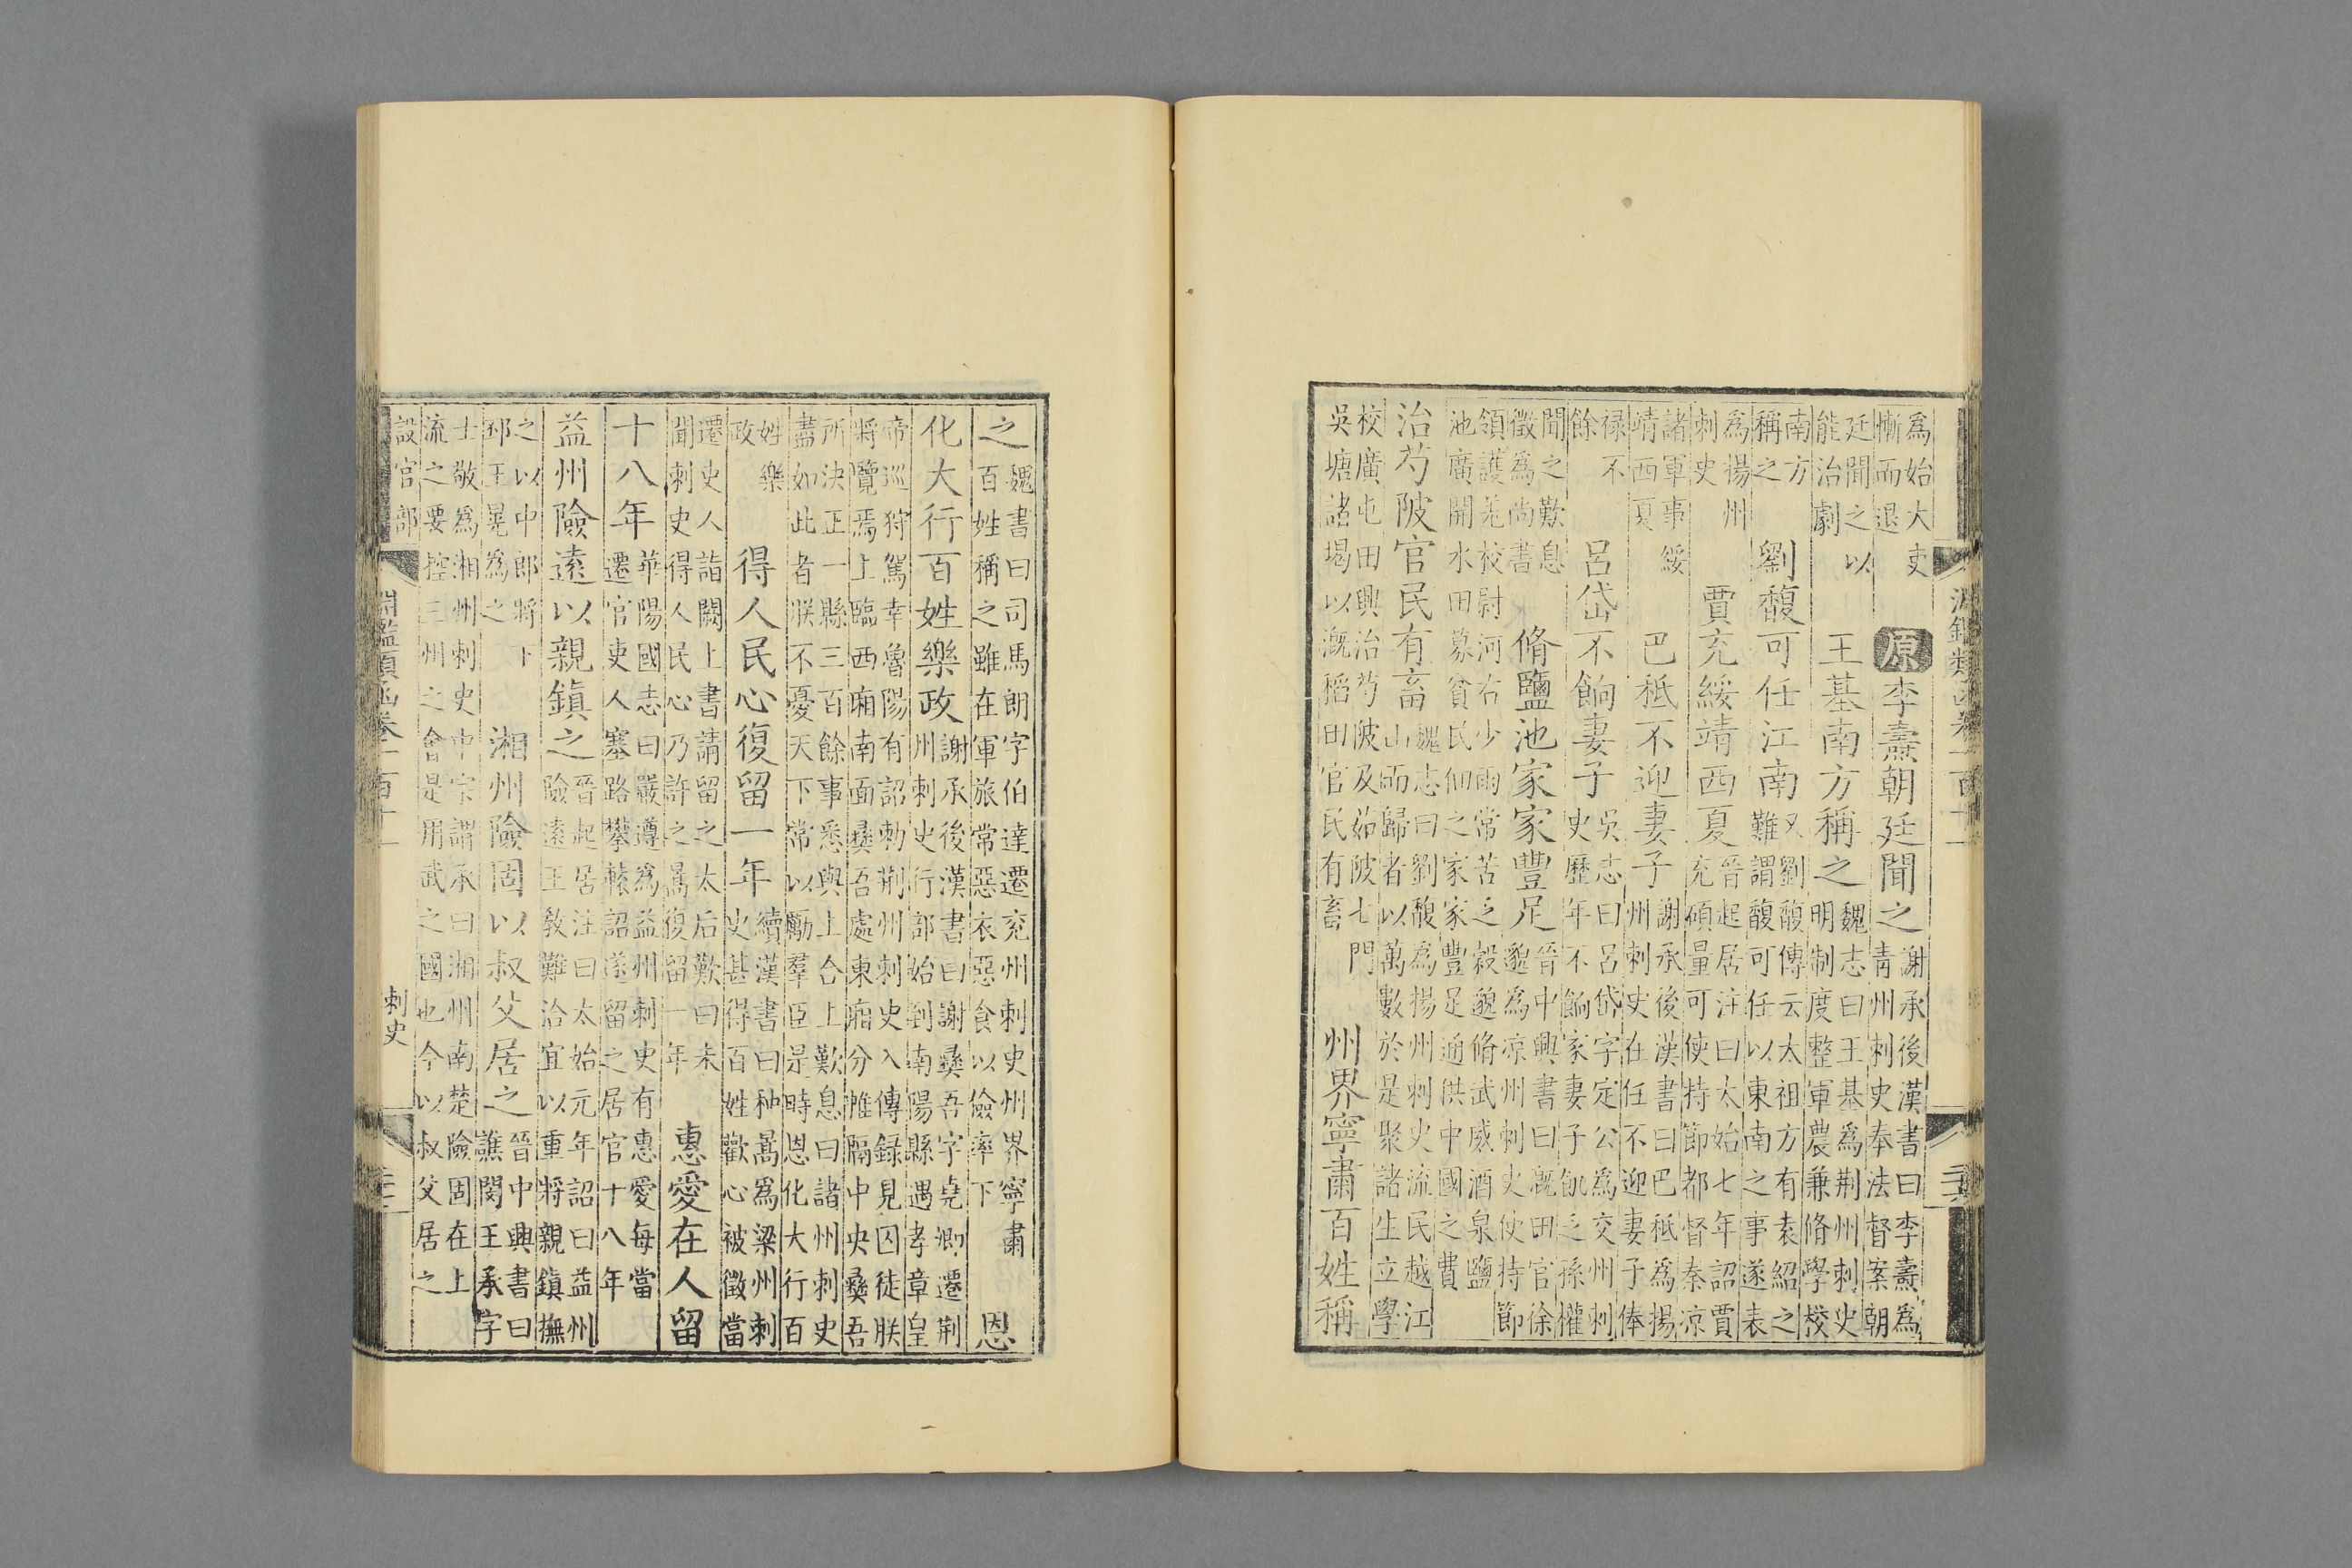 淵鑑類函卷一百十一
為始大吏
慚而退
原李燾朝廷聞之
謝承後漢書曰李壽為
青州刺史奉法督案朝
廷聞之以
能治劇
王基南方稱之
魏志曰王基為荆州刺史
明制度整軍農兼脩學校
南方
稱之
劉馥可任江南
又劉馥傳云太祖方有袁紹之
難謂馥可任以東南之事遂表
為揚州
刺史
賈充綏靖西夏
晉起居注曰太始七年詔賈
充碩量可使持節都督秦凉
諸軍事綏
靖西夏
巴祗不迎妻子
謝承後漢書曰巴祗為揚
州刺史在任不迎妻子俸
禄不
餘
呂岱不餉妻子
吳志曰呂岱字定公為交州刺
史歷年不餉家妻子飢乏孫權
聞之歎息
徵為尚書
脩鹽池家家豐足
晉中興書曰溉田官徐
邈為凉州刺史使持節
領護羌校尉河右少雨常苦乏穀邈脩武威酒泉鹽
池廣開水田募貧民佃之家家豐足通洪中國之費
治芍陂官民有畜
魏志曰劉馥為揚州刺史流民越江
山而歸者以萬數於是聚諸生立學
校廣屯田興治芍陂及茹陂七門
吳塘諸堨以溉稻田官民有畜
州界寧肅百姓稱
之
魏書曰司馬朗字伯達遷兖州刺史州界寧肅
百姓稱之雖在軍旅常惡衣惡食以儉率下
恩
化大行百姓樂政
謝承後漢書曰謝彝吾字堯卿遷荆
州刺史行部始到南陽縣遇孝章皇
帝巡狩駕幸魯陽有詔勅荆州刺史入傳録見囚徒朕
將覽焉上臨西廂南面彝吾處東廂分帷隔中央彝吾
所決正一縣三百餘事悉與上合上歎息曰諸州刺史
盡如此者朕不憂天下常以勵羣臣是時恩化大行百
姓樂
政
得人民心復留一年
續漢書曰种暠為梁州刺
史甚得百姓歡心被徵當
遷吏人詣闕上書請留之太后歎曰未
聞刺史得人民心乃許之暠復留一年
惠愛在人留
十八年
華陽國志曰嚴遵為益州刺史有惠愛每當
遷官吏人塞路攀轅詔遂留之居官十八年
益州險遠以親鎮之
晉起居注曰太始元年詔曰益州
險遠王教難洽宜以重將親鎮撫
之以中郎將下
邳王晃為之
湘州險固以叔父居之
晉中興書曰
譙閔王承字
士敬為湘州刺史中宗謂承曰湘州南楚險固在上
流之要控三州之會是用武之國也今以叔父居之
設官部
淵鑑類函卷一百十一
刺史